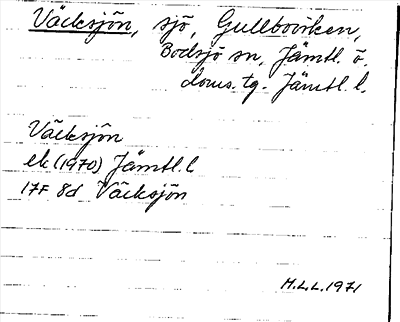 Väcksjön, sjö, Gullboviken,
Bodsjö sn, Jämtl. ö.
doms. tg. Jämtl. l.
Väcksjön
ek (1970) Jämtl. l
17F 8d Väcksjön
M.L.L. 1971